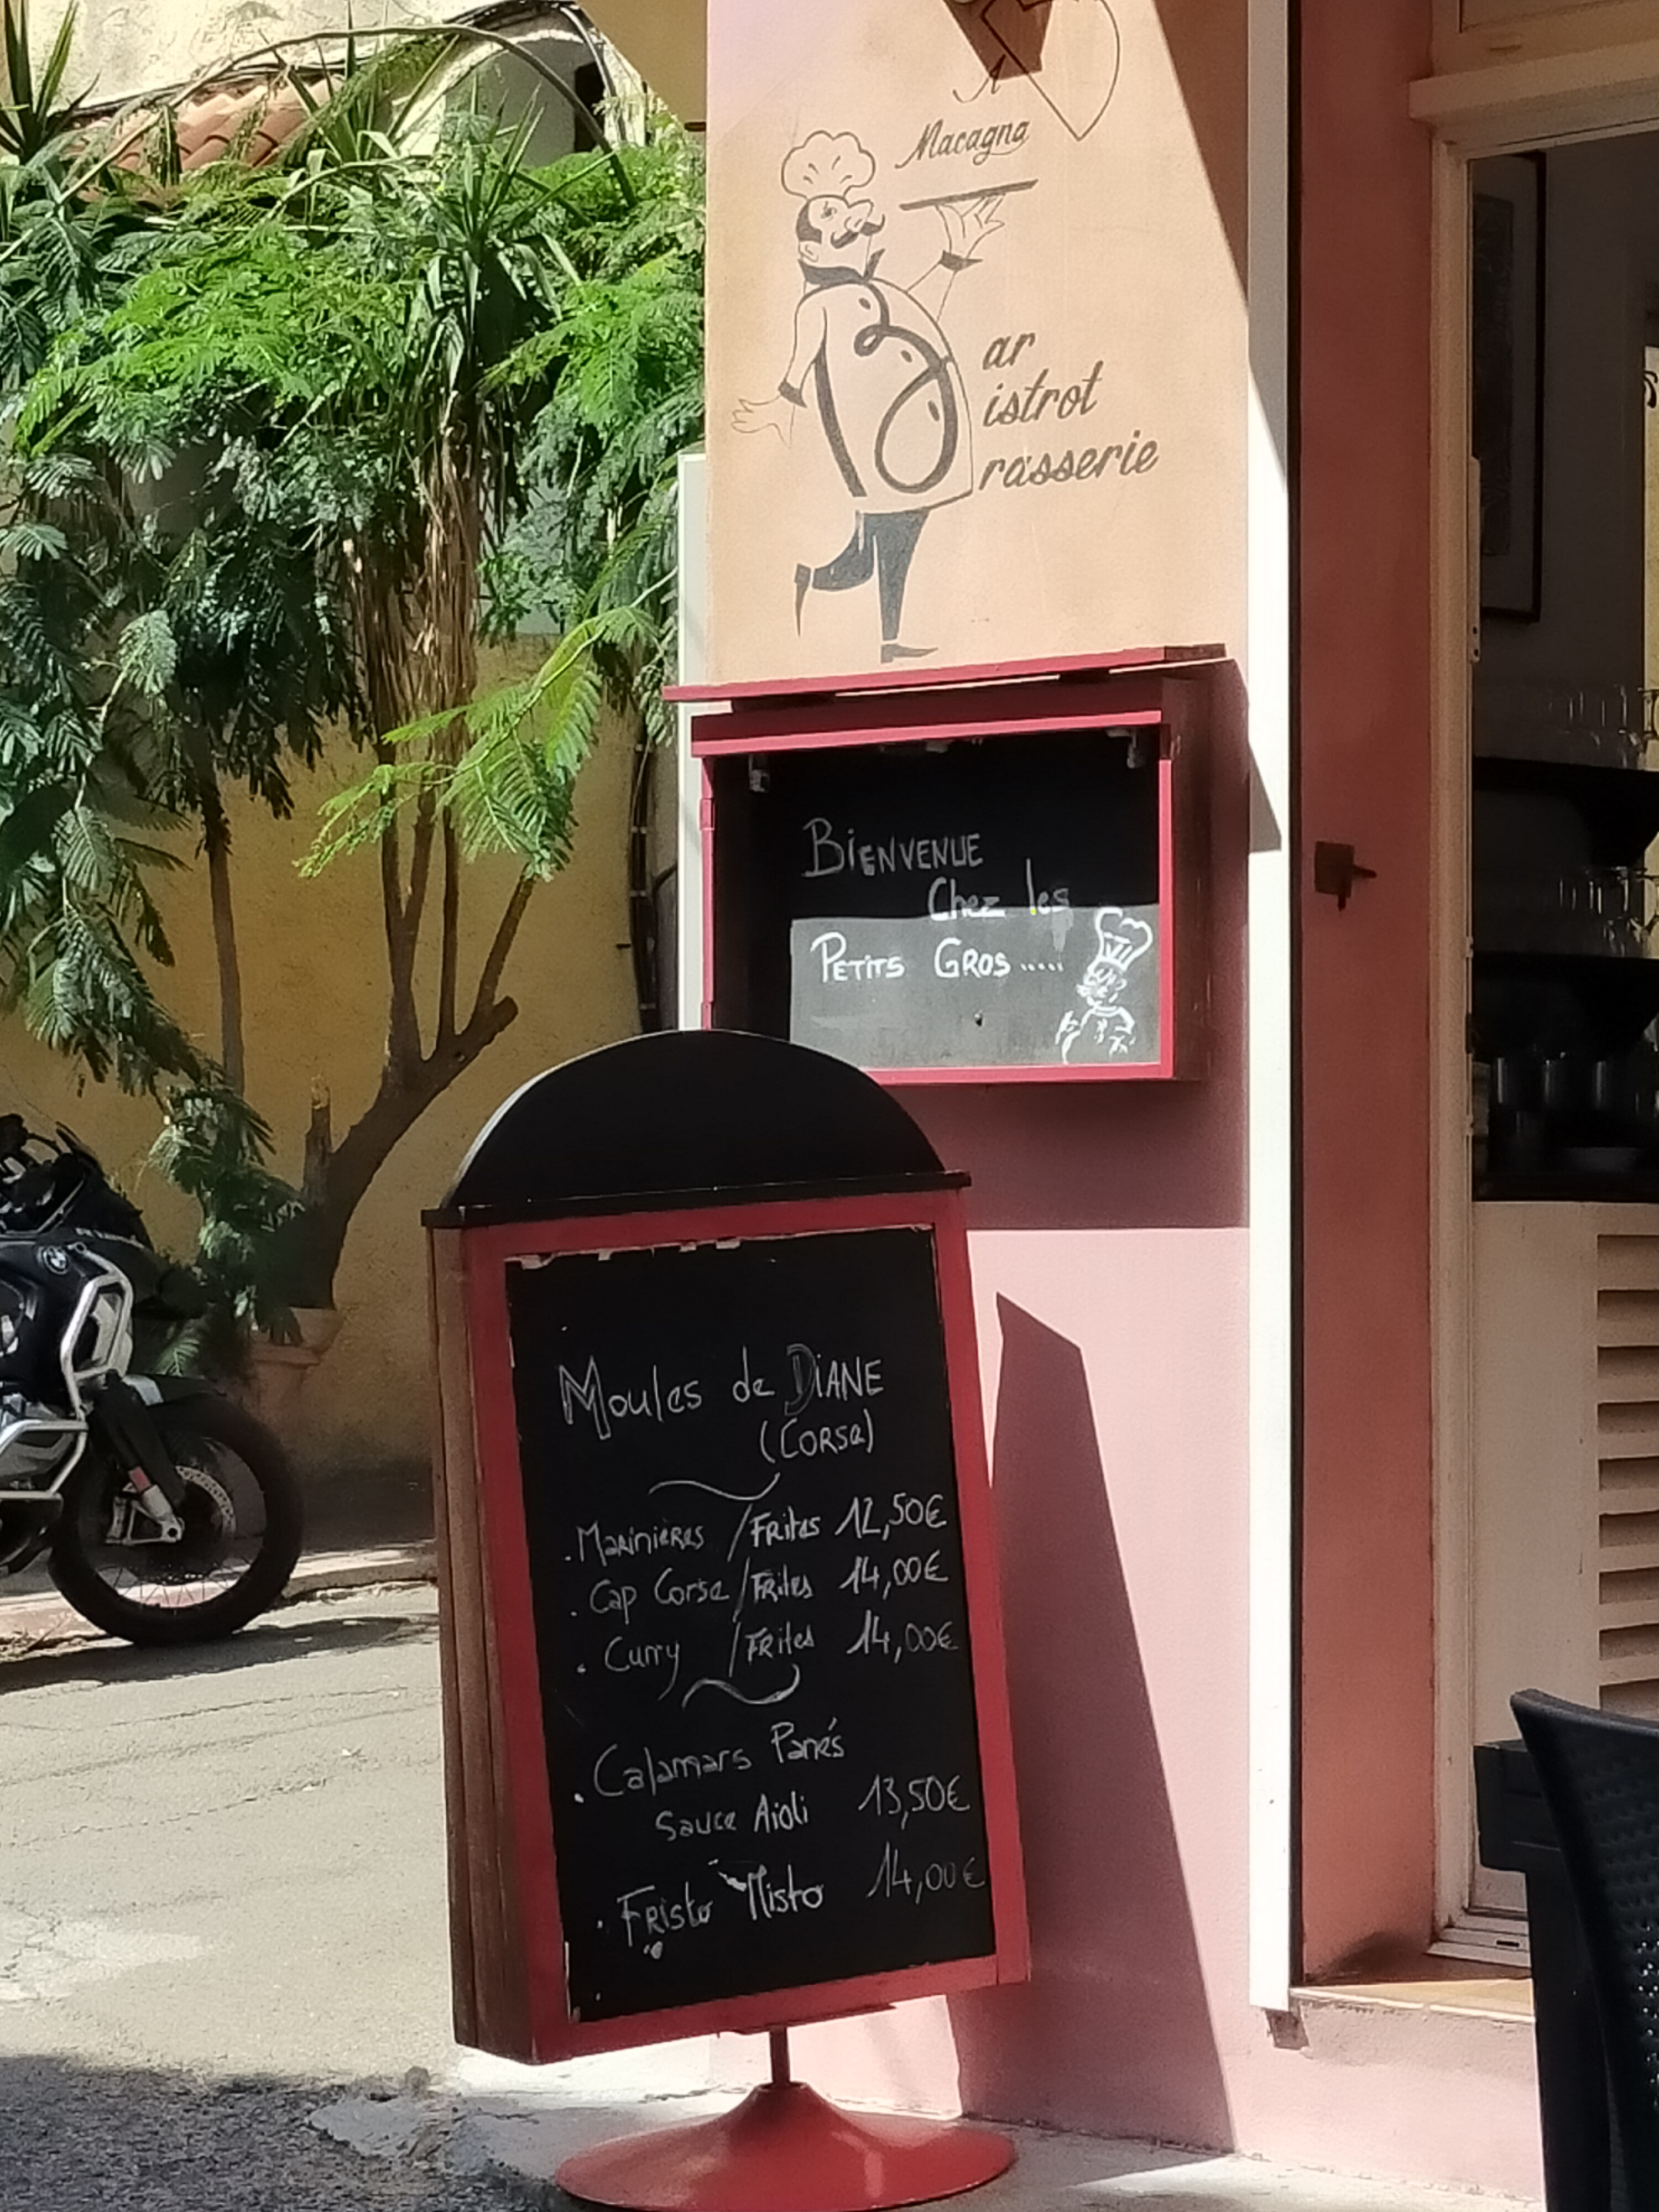 A
Macagna
ar
istrot
rasserie
BiENVENUE
Chez les
PETITS GROS.....
Moules de DiANE
(CORSE)
. MARINIÈRES / FRites 12,50€
. Cap Corse / FRites 14,00€
. Curry / FRites 14,00€
. Calamars Panés
Sauce Aioli 13,50€
. FRisto Misto 14,00€